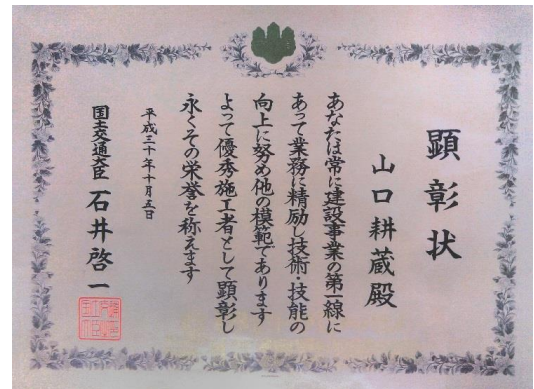 顕彰状
山口耕蔵殿
あなたは常に建設事業の第一線に
あって業務に精励し技術・技能の
向上に努め他の模範であります
よって優秀施工者として顕彰し
永くその栄誉を称えます
平成三十年十月五日
国土交通大臣 石井啓一